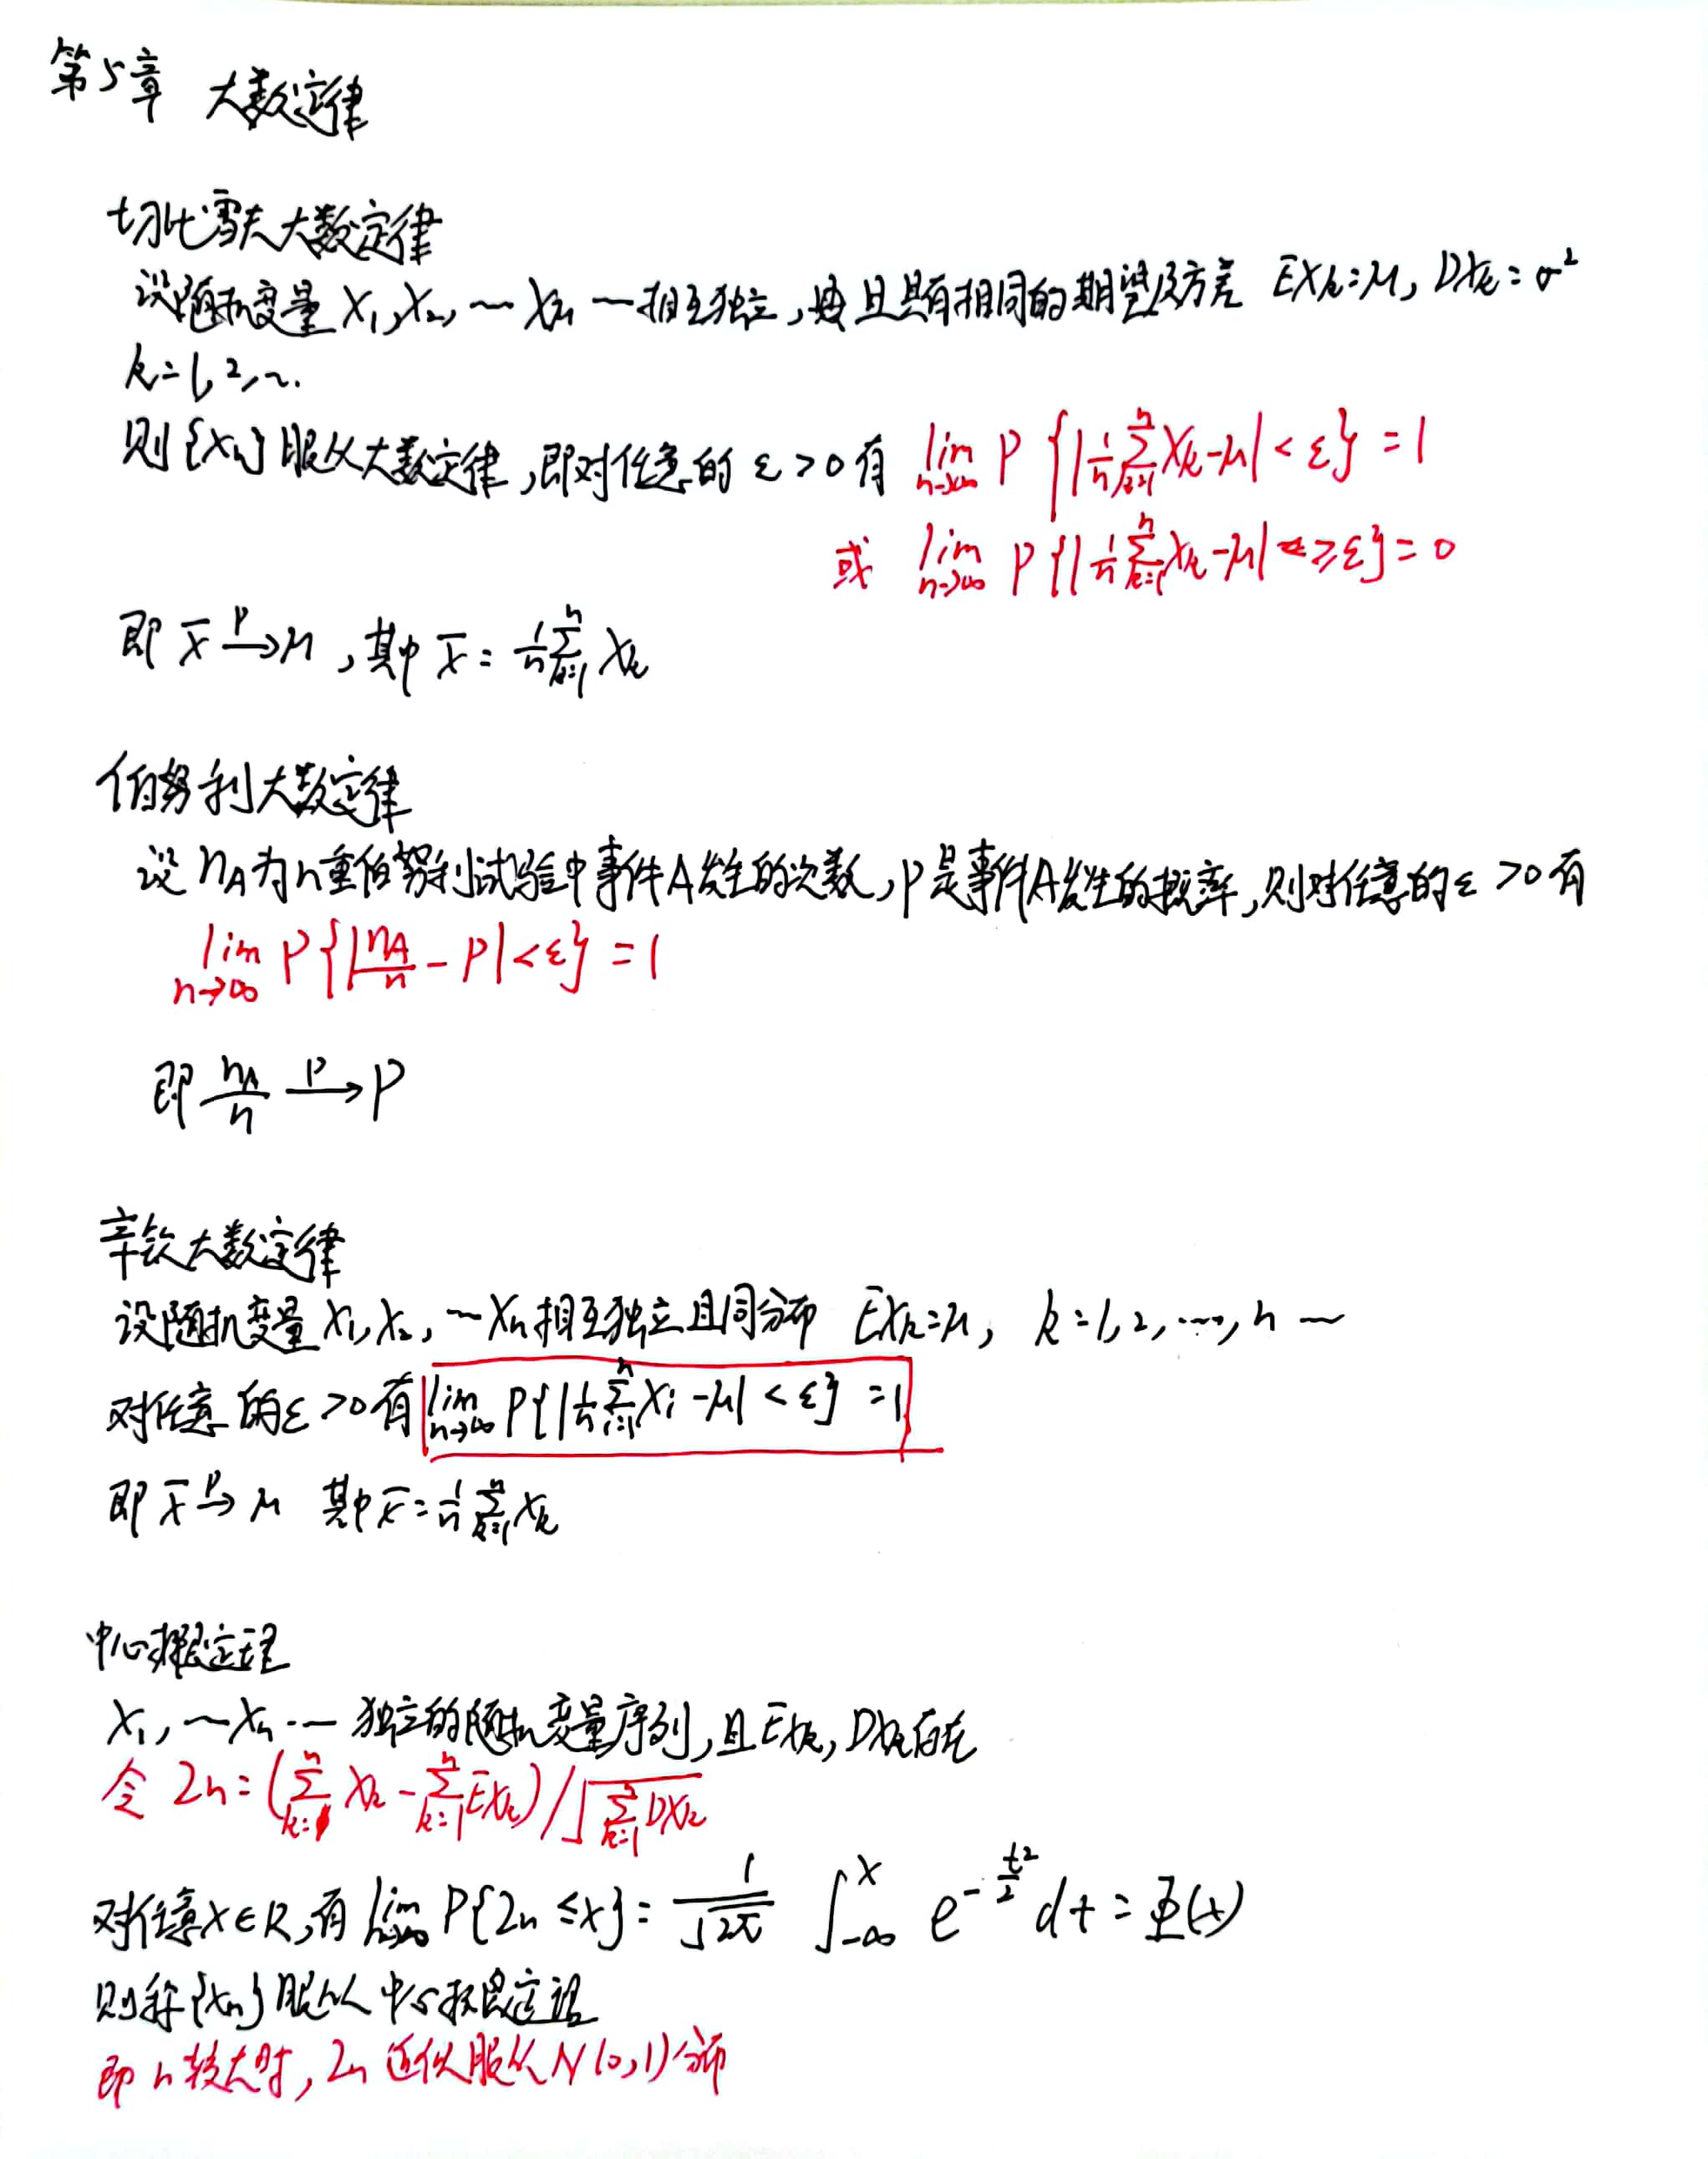 第5章 大数定律
切比雪夫大数定律
设随机变量 X₁,X₂,…Xₙ…相互独立,且具有相同的期望及方差 EXₖ=μ, DXₖ=σ²
k=1,2,….
则{Xₙ}服从大数定律,即对任意的 ε>0有 lim_{n→∞} P{|1/n ∑_{k=1}^{n} Xₖ-μ|<ε}=1
或 lim_{n→∞} P{|1/n ∑_{k=1}^{n} Xₖ-μ| ≥ε}=0
即 X̄ —P→ μ ,其中 X̄ = 1/n ∑_{k=1}^{n} Xₖ
伯努利大数定律
设 n_A为n重伯努利试验中事件A发生的次数,P是事件A发生的概率,则对任意的ε>0有
lim_{n→∞} P{|n_A/n - P|<ε}=1
即 n_A/n —P→ P
辛钦大数定律
设随机变量 X₁,X₂,…Xₙ相互独立且同分布 EXₖ=μ, k=1,2,…,n …
对任意的ε>0有 lim_{n→∞} P{|1/n ∑_{i=1}^{n} Xᵢ-μ|<ε}=1
即 X̄ —P→ μ 其中 X̄=1/n ∑_{k=1}^{n} Xₖ
中心极限定理
X₁,…Xₙ… 独立的随机变量序列,且EXₖ,DXₖ存在
令 Zn=(∑_{k=1}^{n} Xₖ-∑_{k=1}^{n} EXₖ)/√(∑_{k=1}^{n} DXₖ)
对任意X∈R,有 lim_{n→∞} P{Zn≤x}= 1/√(2π) ∫_{-∞}^{x} e^{-t²/2} dt=Φ(x)
则称{Xn}服从中心极限定理
即 n较大时,Zn近似服从N(0,1)分布